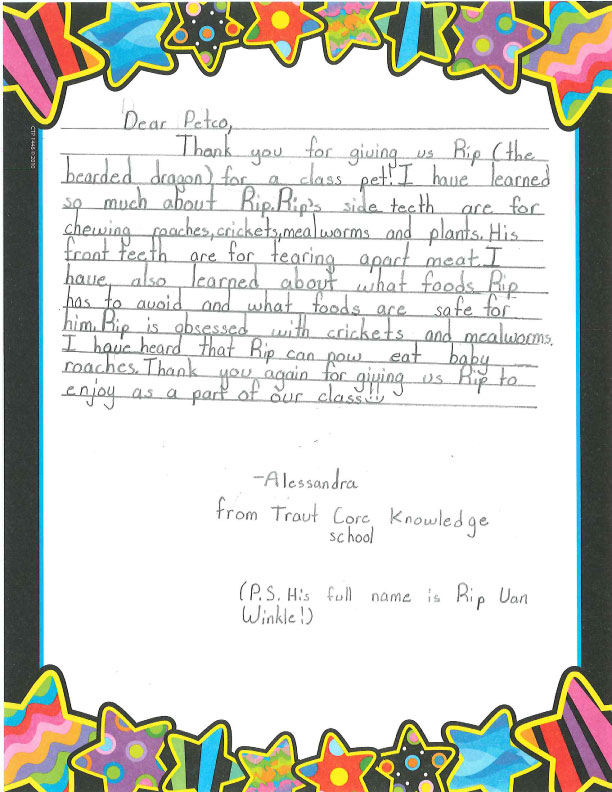 Dear Petco,
Thank you for giving us Rip (the
bearded dragon) for a class pet! I have learned
so much about Rip. Rip's side teeth are for
chewing roaches, crickets, mealworms and plants. His
front teeth are for tearing apart meat. I
have also learned about what foods Rip
has to avoid and what foods are safe for
him. Rip is obsessed with crickets and mealworms.
I have heard that Rip can now eat baby
roaches. Thank you again for giving us Rip to
enjoy as a part of our class!!
-Alessandra
from Traut Core Knowledge
school
(P.S. His full name is Rip Van
Winkle!)
CTP 1445 ©2010